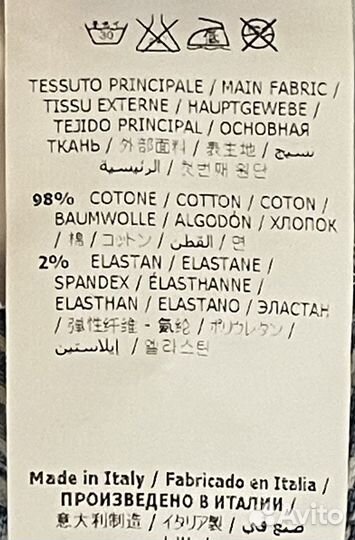 30
TESSUTO PRINCIPALE / MAIN FABRIC /
TISSU EXTERNE / HAUPTGEWEBE /
TEJIDO PRINCIPAL / ОСНОВНАЯ
ТКАНЬ / 外部面料 / 表主地 / نسيج
الرئيسية / 첫번째 원단
98% COTONE / COTTON / COTON /
BAUMWOLLE / ALGODÓN / ХЛОПОК
/ 棉 / コットン / القطن / 면
2% ELASTAN / ELASTANE /
SPANDEX / ÉLASTHANNE /
ELASTHAN / ELASTANO / ЭЛАСТАН
/ 弹性纤维 - 氨纶 / ポリウレタン /
إيلاستين / 엘라스틴
Made in Italy / Fabricado en Italia /
ПРОИЗВЕДЕНО В ИТАЛИИ /
意大利制造 / イタリア製 / صنع في
Avito